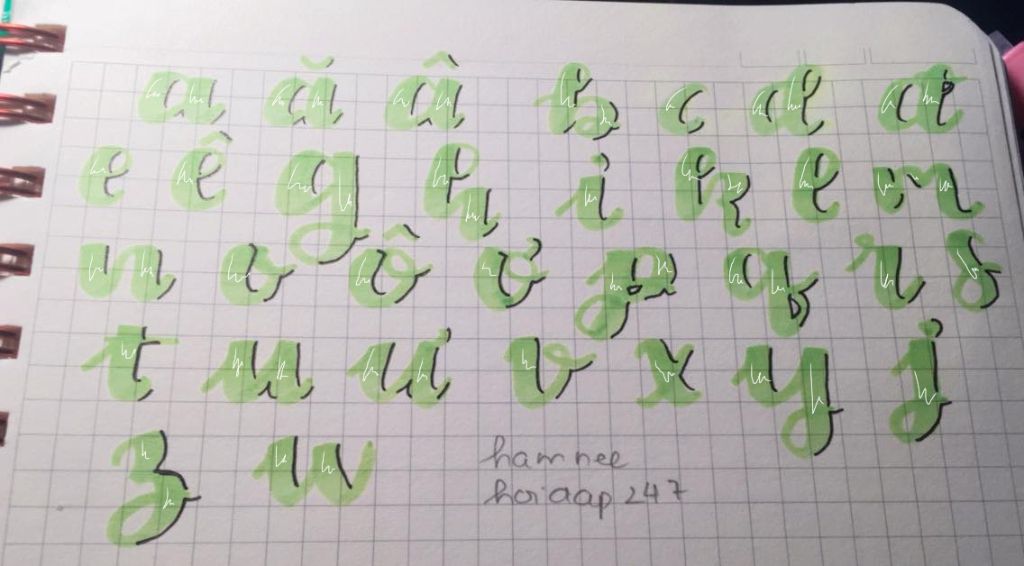 a ă â b c d đ
e ê g h i k l m
n o ô ơ p q r s
t u ư v x y j
z w
hamnee
hoidap247